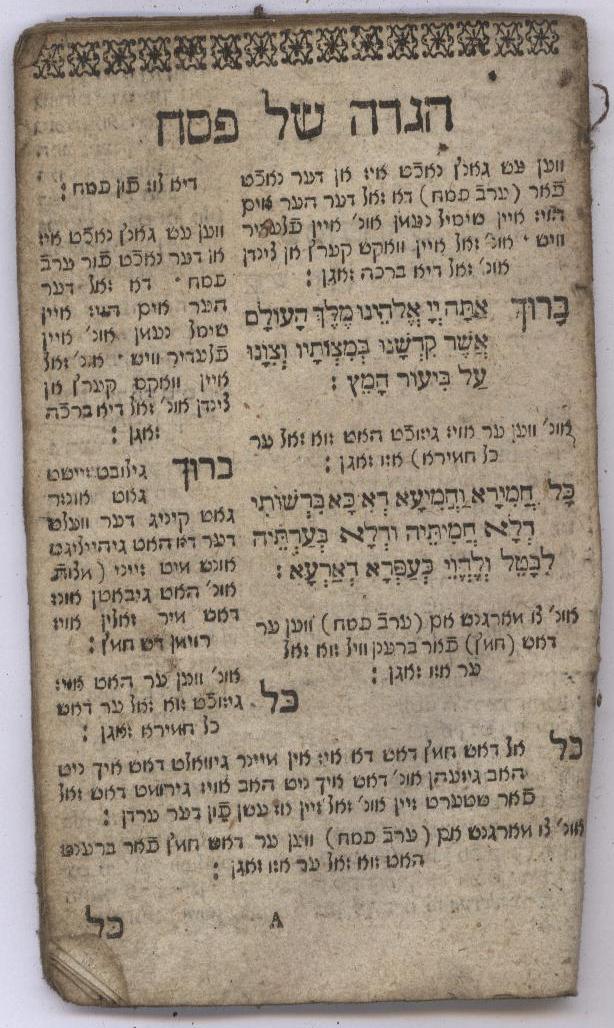 הגדה של פסח
ווען עט גאנץ נאכט איז אן דער נאכט
פאר (ערב פסח) דא זאל דער הער אים
הויז איין שיסיל נעמן אונ' איין פלעדיר
וויש · אונ' זאל איין וואקס קערץ אן צינדן
אונ' זאל דיא ברכה זאגן :
בָּרוּךְ אַתָּה יְיָ אֱלֹהֵינוּ מֶלֶךְ הָעוֹלָם
אֲשֶׁר קִדְּשָׁנוּ בְּמִצְוֹתָיו וְצִוָּנוּ
עַל בִּיעוּר הָמֵץ :
אונ' ווען ער אויז גיזוכט האט זוא זאל ער
כל חמירא) אזו זאגן :
כָּל חֲמִירָא וַחֲמִיעָא דְאִכָּא בִּרְשׁוּתִי
דְּלָא חֲמִיתֵּיהּ וּדְלָא בְּעַרְתֵּיהּ
לִבָּטֵל וְלֶהֱוֵי כְּעַפְרָא דְאַרְעָא :
אונ' צו מארגנש אם (ערב פסח) ווען ער
דאש (חמץ) פאר ברענן וויל זוא זאל
ער אזו זאגן :
דיא פון פסח :
ווען עט גאנץ נאכט איז
אן דער נאכט פור ערב
פסח · דא זאל דער
הער אים הויז איין
שיסל נעמן אונ' איין
פלעדיר וויש · אונ' זאל
איין וואקס קערץ אן
צינדן אונ' זאל דיא ברכה
זאגן :
ברוך גילובט זייסט
גאט אונזר
גאט קיניג דער וועלט
דער דא האט גיהייליגט
אונש מיט זייני (מצות
אונ' האט גיבאטן אונז
דאש מיר זאלין אויז
רוימן דש חמץ :
אונ' ווען ער האט אויז
גיזוכט זוא זאל ער דאש
כל חמירא זאגן :
כל
כל אל דאש חמץ דאש דא איז אין מיינר גיוואלט דאש איך ניט
האב גיזעהן אונ' דאש איך ניט האב אויז גירוימט דאש זאל
פאר שטערט זיין אונ' זאל זיין אזו עשן פון דער ערדן :
אונ' צו מארגנש אם (ערב פסח) ווען ער דאש חמץ פאר ברענט
האט זוא זאל ער אזו זאגן :
A
כל